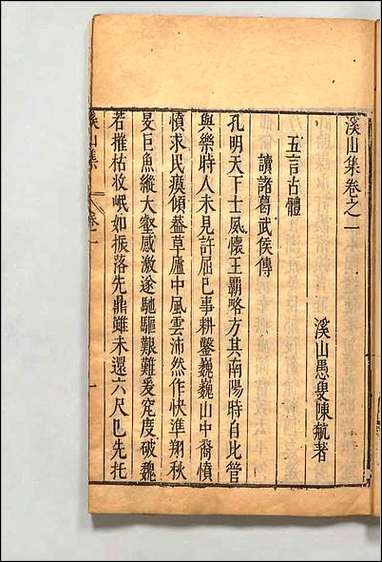 溪山集卷之一
溪山愚叟陳航著
五言古體
讀諸葛武侯傳
孔明天下士夙懷王霸略方其南陽時自比管
與樂時人未見許屈己事耕鑿巍巍山中裔憤
憤求民瘼傾葢草廬中風雲沛然作快準翔秋
旻巨魚縱大壑感激遂馳驅艱難爰究度破魏
若摧枯收岷如振落先鼎雖未還六尺已先托
溪山集
卷一
一